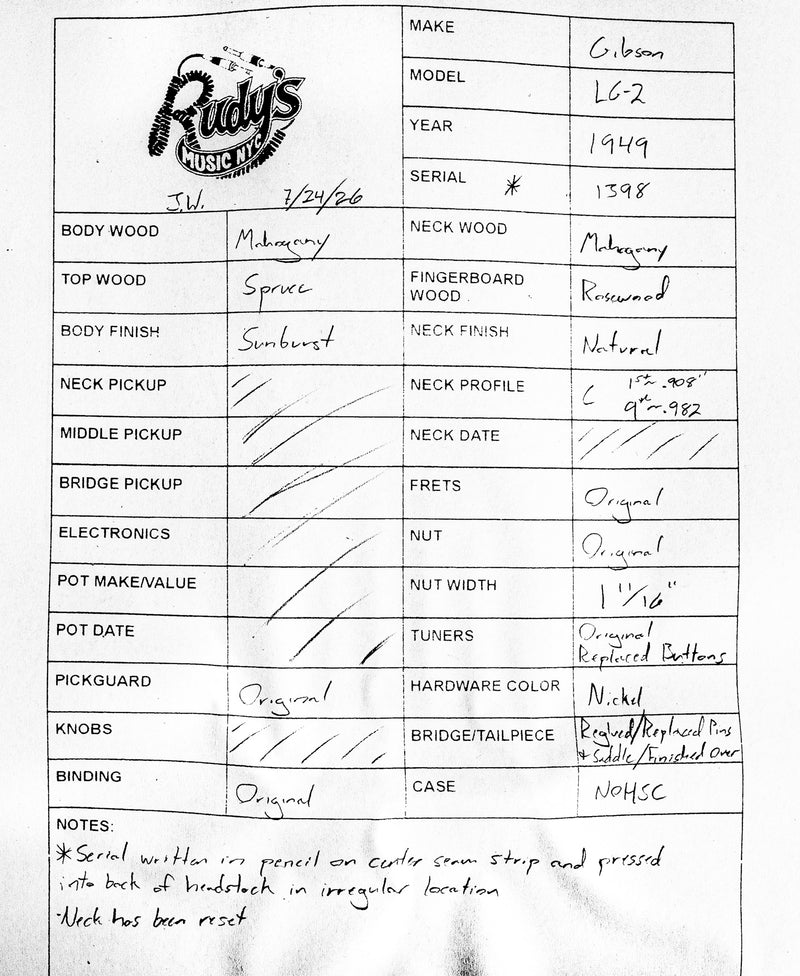 Rudy's
MUSIC NYC
J.W. 7/24/26
MAKE Gibson
MODEL LG-2
YEAR 1949
SERIAL * 1398
BODY WOOD Mahogany
NECK WOOD Mahogany
TOP WOOD Spruce
FINGERBOARD
WOOD Rosewood
BODY FINISH Sunburst
NECK FINISH Natural
NECK PICKUP
NECK PROFILE C 1st ~ .908"
9th ~ .982
MIDDLE PICKUP
NECK DATE
BRIDGE PICKUP
FRETS Original
ELECTRONICS
NUT Original
POT MAKE/VALUE
NUT WIDTH 1 11/16"
POT DATE
TUNERS Original
Replaced Buttons
PICKGUARD Original
HARDWARE COLOR Nickel
KNOBS
BRIDGE/TAILPIECE Reglued/Replaced Pins
+ Saddle/Finished Over
BINDING Original
CASE NOHSC
NOTES:
*Serial written in pencil on center seam strip and pressed
into back of headstock in irregular location
-Neck has been reset